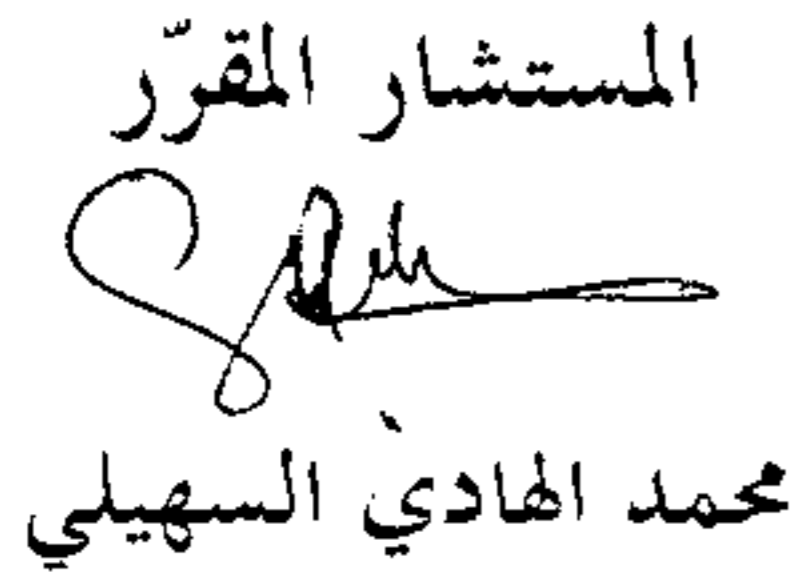 المستشار المقرّر
محمد الهادي السهيلي